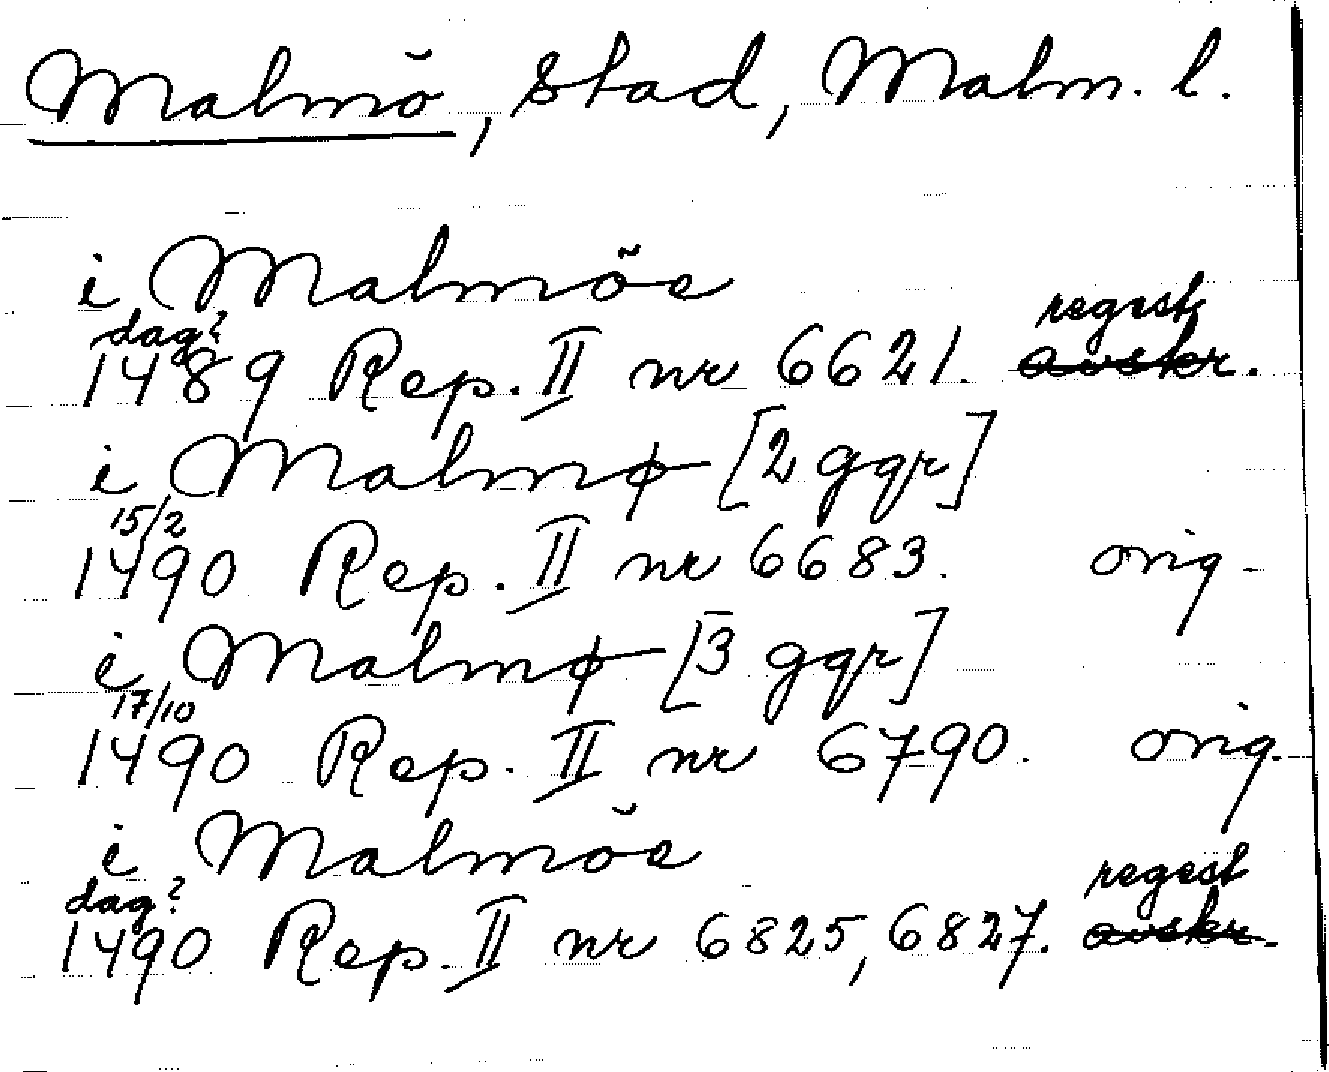 Malmö, stad, Malm. l.
i Malmöe
dag? regest
1489 Rep. II nr 6621. avskr.
i Malmø [2 ggr]
15/2
1490 Rep. II nr 6683. orig.
i Malmø [3 ggr]
17/10
1490 Rep. II nr 6790. orig.
i Malmöe
dag? regest
1490 Rep. II nr 6825, 6827. avskr.